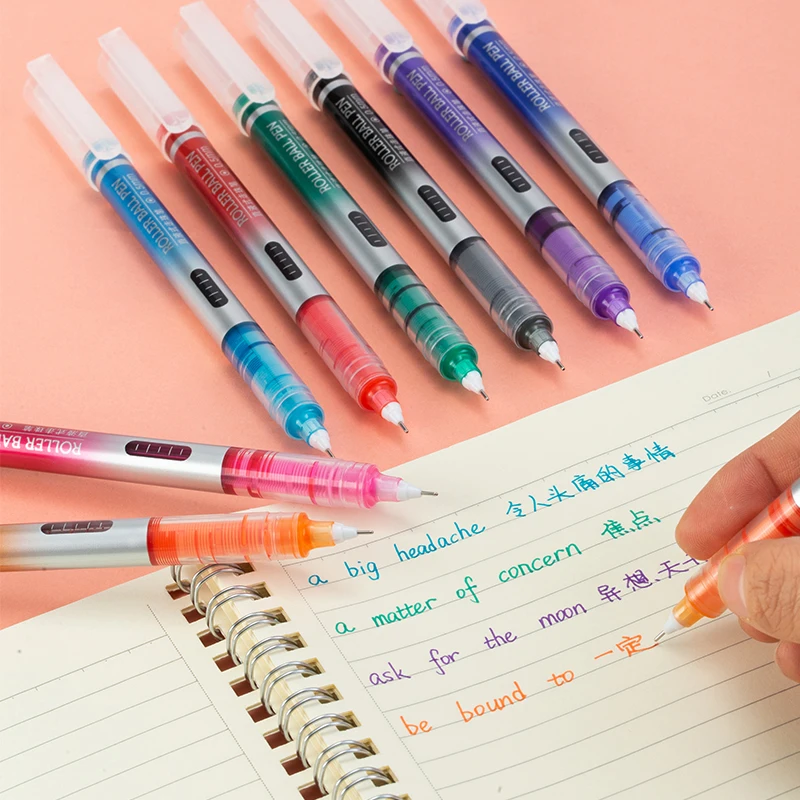 ROLLER BALL PEN 0.5mm
ROLLER BALL PEN 0.5mm
ROLLER BALL PEN
ROLLER BALL PEN 0.5mm
ROLLER BALL PEN 0.5mm
ROLLER BALL PEN
ROLLER BA
Date: /
a big headache 令人头痛的事情
a matter of concern 焦点
ask for the moon 异想天
be bound to 一定